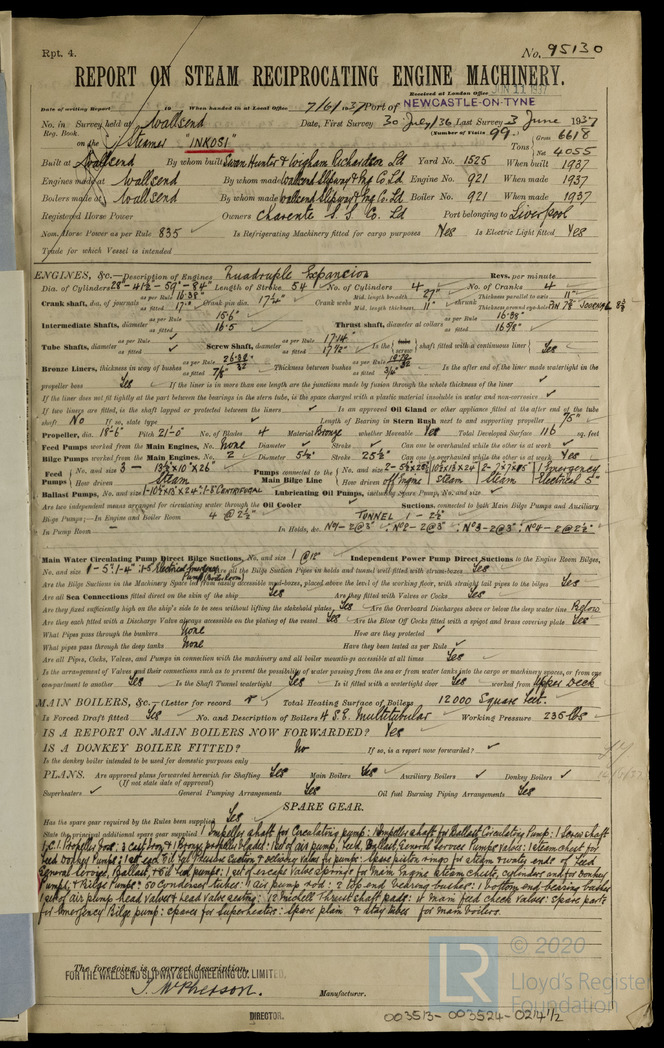 Rpt. 4.
No. 95130
REPORT ON STEAM RECIPROCATING ENGINE MACHINERY.
Received at London Office JUN 11 1937
Date of writing Report 19 When handed in at Local Office 7/6/1937 Port of NEWCASTLE-ON-TYNE
No. in Survey held at Wallsend Date, First Survey 30 July/36 Last Survey 3 June 1937
Reg. Book. (Number of Visits 99)
on the Steamer "INKOSI" Tons Gross 6618 Net 4055
Built at Wallsend By whom built Swan Hunter & Wigham Richardson Ld Yard No. 1525 When built 1937
Engines made at Wallsend By whom made Wallsend Slipway & Eng Co. Ld Engine No. 921 When made 1937
Boilers made at Wallsend By whom made Wallsend Slipway & Eng Co. Ld Boiler No. 921 When made 1937
Registered Horse Power Owners Charente S.S. Co. Ld Port belonging to Liverpool
Nom. Horse Power as per Rule 835 Is Refrigerating Machinery fitted for cargo purposes Yes Is Electric Light fitted Yes
Trade for which Vessel is intended
ENGINES, &c.—Description of Engines Quadruple Expansion Revs. per minute
Dia. of Cylinders 28"-41½-59"-84" Length of Stroke 54 No. of Cylinders 4 No. of Cranks 4
Crank shaft, dia. of journals as per Rule 16.38 as fitted 17" Crank pin dia. 17¼" Crank webs Mid. length breadth 27" Mid. length thickness 11" shrunk Thickness parallel to axis 11" Thickness around eye-hole
Intermediate Shafts, diameter as per Rule 15.6" as fitted 16.5 Thrust shaft, diameter at collars as per Rule 16.38" as fitted
Tube Shafts, diameter as per Rule as fitted Screw Shaft, diameter as per Rule 17.14" as fitted 17½" Is the screw shaft fitted with a continuous liner Yes
Bronze Liners, thickness in way of bushes as per Rule as fitted Thickness between bushes as per Rule as fitted Is the after end of the liner made watertight in the
propeller boss Yes If the liner is in more than one length are the junctions made by fusion through the whole thickness of the liner
If the liner does not fit tightly at the part between the bearings in the stern tube, is the space charged with a plastic material insoluble in water and non-corrosive
If two liners are fitted, is the shaft lapped or protected between the liners Is an approved Oil Gland or other appliance fitted at the after end of the tube
shaft No If so, state type Length of Bearing in Stern Bush next to and supporting propeller 75"
Propeller, dia. 18'-6" Pitch 21'-0" No. of Blades 4 Material Bronze whether Moveable Yes Total Developed Surface 116 sq. feet
Feed Pumps worked from the Main Engines, No. None Diameter Stroke Can one be overhauled while the other is at work
Bilge Pumps worked from the Main Engines, No. 2 Diameter 5½" Stroke 25½" Can one be overhauled while the other is at work Yes
Feed Pumps No. and size 3 - 13½"x10"x26" How driven Steam Pumps connected to the Main Bilge Line No. and size How driven Off Engine Steam Steam Electrical 5"
Ballast Pumps, No. and size 1-10½"x13"x24": 1-8" CENTRIFUGAL Lubricating Oil Pumps, including Spare Pump, No. and size
Are two independent means arranged for circulating water through the Oil Cooler Suctions, connected to both Main Bilge Pumps and Auxiliary
Bilge Pumps;—In Engine and Boiler Room 4 @ 2½" TUNNEL 1 - 2½"
In Pump Room — In Holds, &c. No1-2@3": No2-2@3": No3-2@3": No4-2@2½"
Main Water Circulating Pump Direct Bilge Suctions, No. and size 1 @ 12" Independent Power Pump Direct Suctions to the Engine Room Bilges,
No. and size 1-5": 1-4": 1-5 Electrical Emergency Pump (Boiler Room) Are all the Bilge Suction Pipes in holds and tunnel well fitted with strum-boxes Yes
Are the Bilge Suctions in the Machinery Space led from easily accessible mud-boxes, placed above the level of the working floor, with straight tail pipes to the bilges Yes
Are all Sea Connections fitted direct on the skin of the ship Yes Are they fitted with Valves or Cocks Yes
Are they fixed sufficiently high on the ship's side to be seen without lifting the stokehold plates Yes Are the Overboard Discharges above or below the deep water line Below
Are they each fitted with a Discharge Valve always accessible on the plating of the vessel Yes Are the Blow Off Cocks fitted with a spigot and brass covering plate Yes
What Pipes pass through the bunkers None How are they protected
What pipes pass through the deep tanks None Have they been tested as per Rule
Are all Pipes, Cocks, Valves, and Pumps in connection with the machinery and all boiler mountings accessible at all times Yes
Is the arrangement of Valves and their connections such as to prevent the possibility of water passing from the sea or from water tanks into the cargo or machinery spaces, or from one
compartment to another Yes Is the Shaft Tunnel watertight Yes Is it fitted with a watertight door Yes worked from Upper Deck
MAIN BOILERS, &c.—(Letter for record ) Total Heating Surface of Boilers 12000 Square feet.
Is Forced Draft fitted Yes No. and Description of Boilers 4 S.E. Multitubular Working Pressure 235 lbs
IS A REPORT ON MAIN BOILERS NOW FORWARDED? Yes
IS A DONKEY BOILER FITTED? No If so, is a report now forwarded?
Is the donkey boiler intended to be used for domestic purposes only
PLANS. Are approved plans forwarded herewith for Shafting Yes Main Boilers Yes Auxiliary Boilers Donkey Boilers
(If not state date of approval)
Superheaters General Pumping Arrangements Yes Oil fuel Burning Piping Arrangements Yes
SPARE GEAR.
Has the spare gear required by the Rules been supplied Yes
State the principal additional spare gear supplied 1 Impeller & shaft for Circulating pump: 1 Impeller & shaft for Ballast Circulating Pump: 1 Screw shaft
1 C.I. Propeller boss: 3 Cast Iron & 1 Bronze propeller blades: 1 Set of air pump, feed, Ballast, General Service Pumps valves: 1 steam chest for
feed donkey Pumps: 1 set each suction & delivery valves for pumps: spare piston rings for steam & water ends of feed
General Service, Ballast, & Oil fuel pumps: 1 set of escape valve springs for main Engine steam chests, cylinders and for donkey
Pumps, & Bilge Pumps: 50 Condenser tubes: 1 air pump rod: 2 top end bearing bushes: 1 bottom end bearing bushes
1 set of air pump head valves & head valve seating: 12 Michell thrust shaft pads: 4 main feed check valves: spare parts
for Emergency Bilge pump: spares for Superheaters: Spare plain & stay tubes for main boilers.
The foregoing is a correct description,
FOR THE WALLSEND SLIPWAY & ENGINEERING CO. LIMITED.
Manufacturer.
DIRECTOR.
003513-003524-0241½
LR © 2020
Lloyd's Register
Foundation